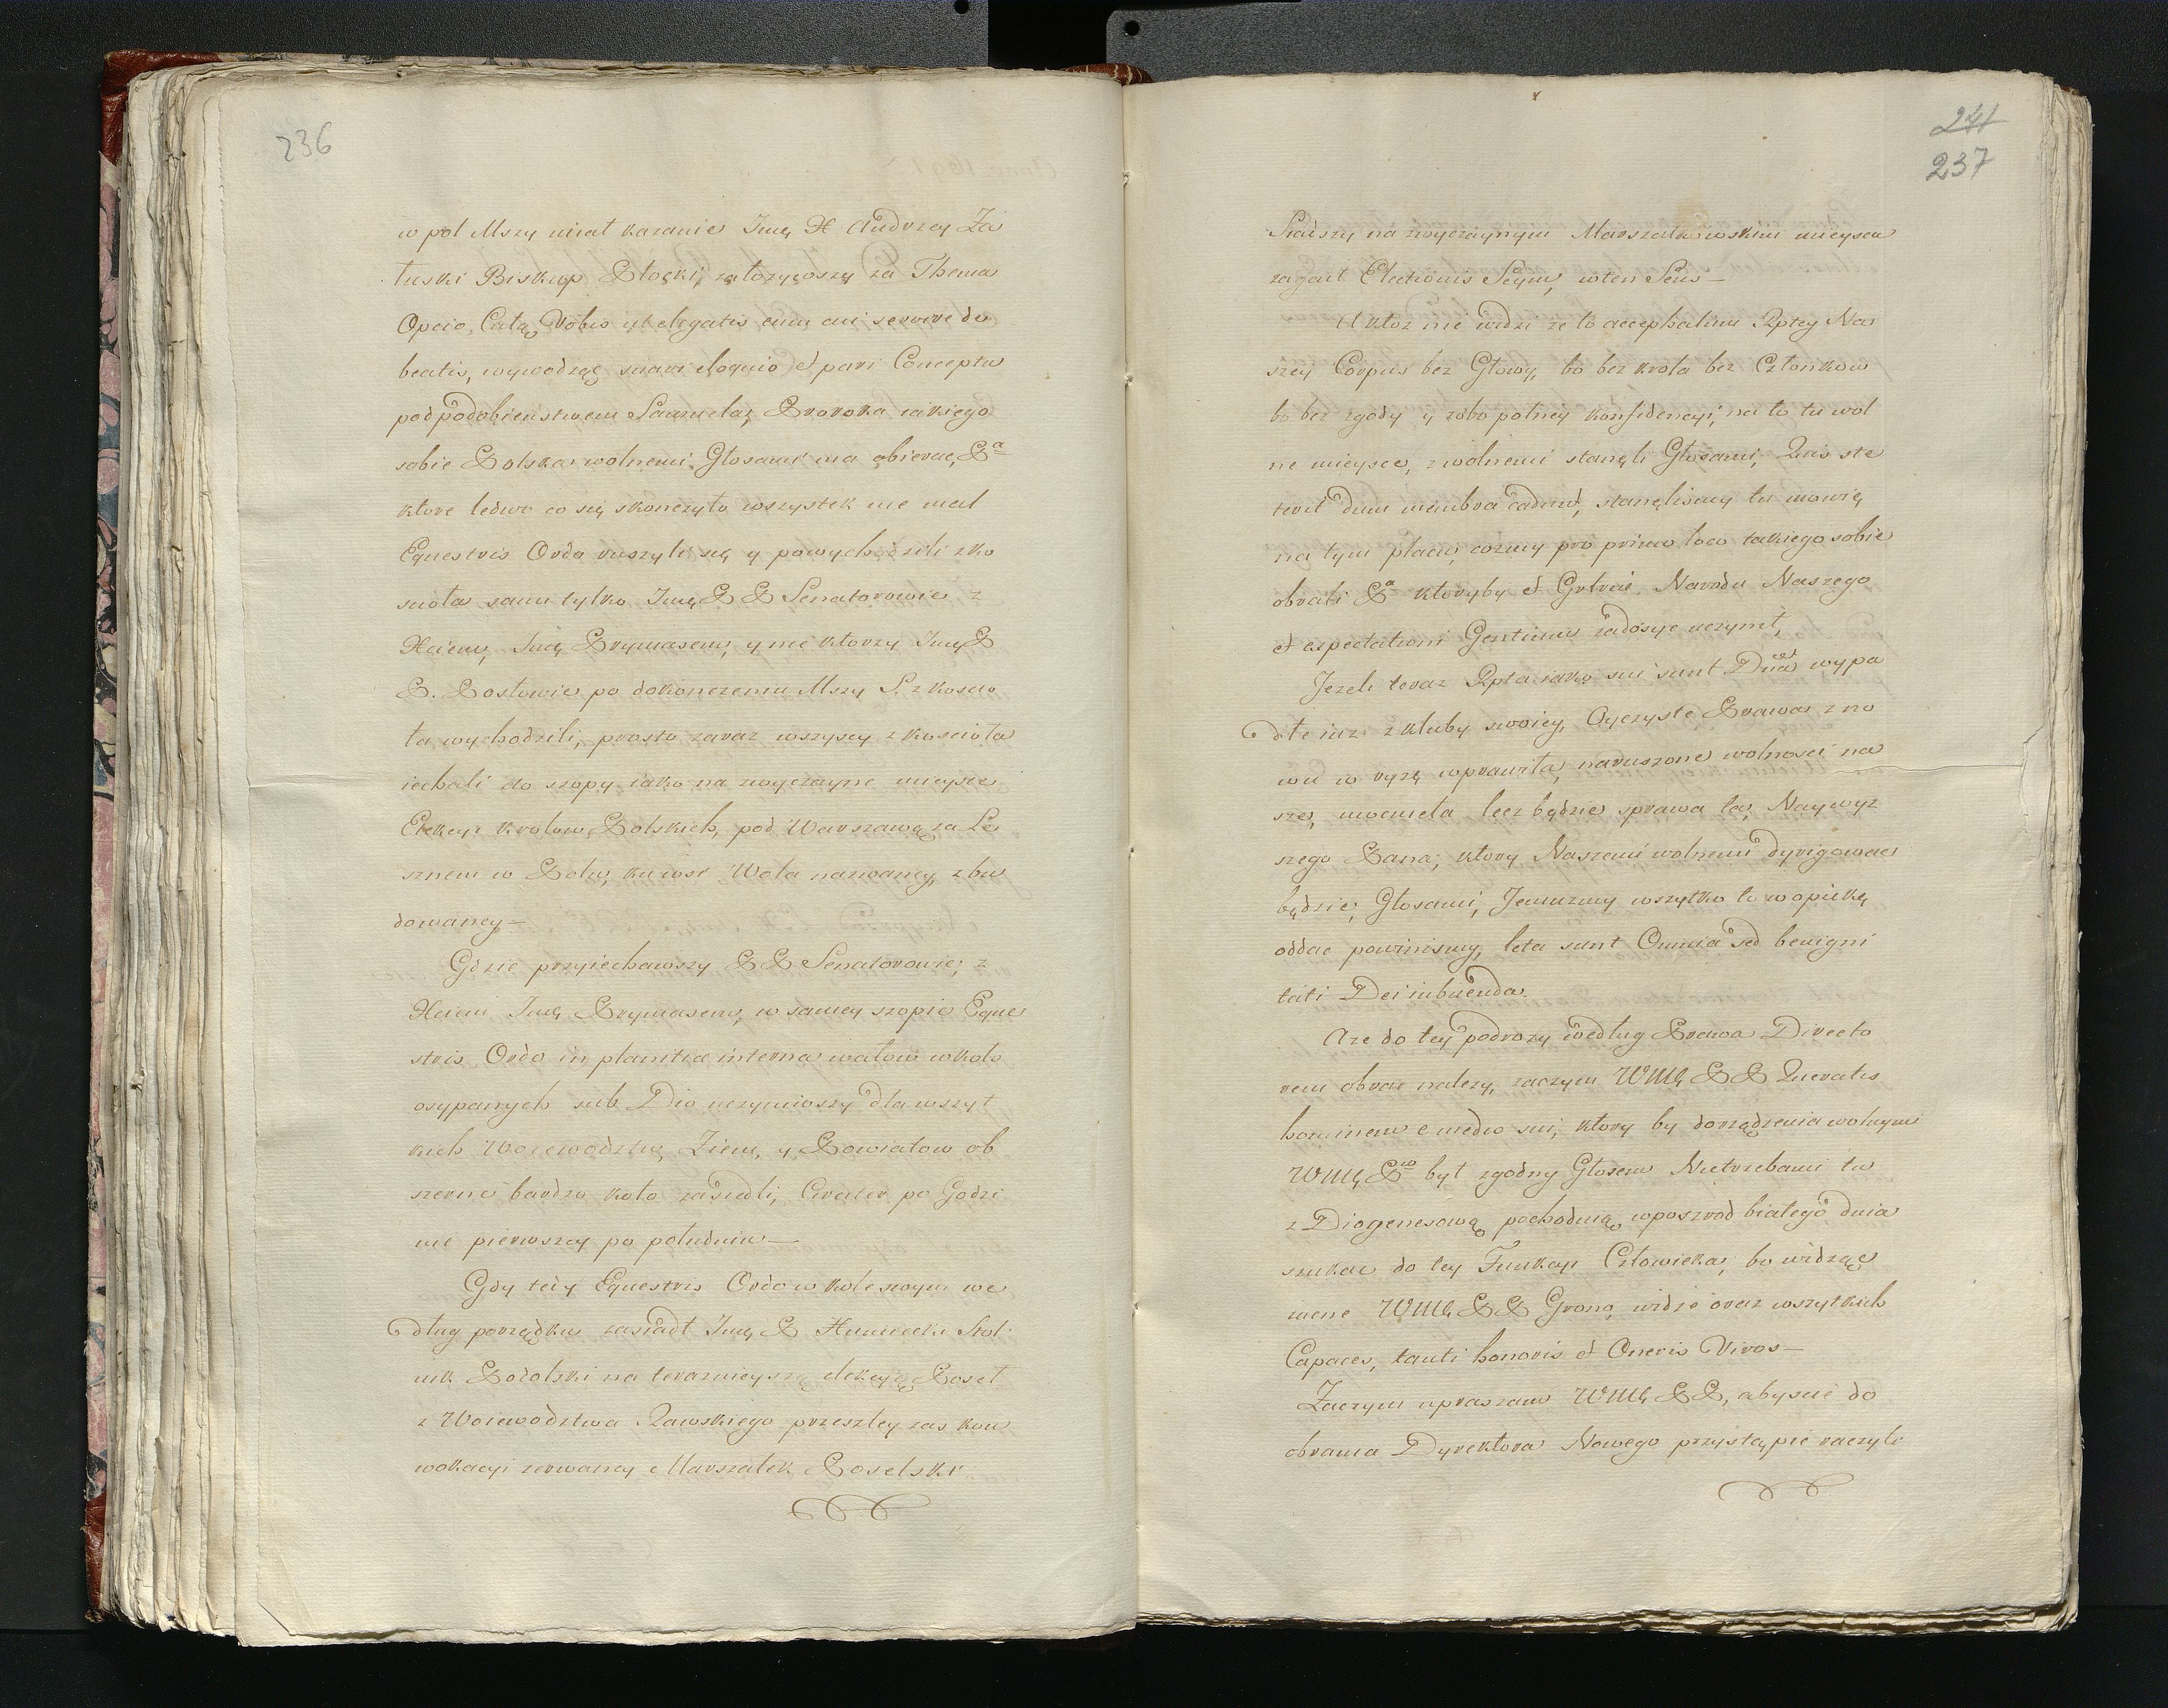 236
w pol Mszy miał kazanie Jmę X Andrzey Za
łuski Biskup Płocki, założywszy za Thema
Opcio Vobis ut elegatis eum cui servire de
beatis, wywodząc suavi eloquio et pari Conceptu
pod podobienstwem Samuela, Proroka iakiego
sobie Polska wolnemi Głosami ma obierac, Pa
ktore ledwo co się skonczyło wszystek nie mal
Equestris Ordo ruszyli się y powychodzili z ko
scioła sami tylko Jmę P P Senatorowie z
Xciem, Jmę Prymasem, y nie ktorzy Jmę P
P. Posłowie po dokonczeniu Mszy S. z koscio
ła wychodzili, prosto zaraz wszyscy z kościoła
iechali do szopy iako na zwyczayne mieysce
Elekcyi krolow Polskich, pod Warszawą za Le
sznem w Polu, ku wsi Wola nazwaney, zbu
dowaney —
Gdzie przyiechawszy P P Senatorowie, z
Xciem Jmę Prymasem, w samey szopie Eque
stris Ordo in planitia interna wałow w koło
osypanych sub Dio uczyniwszy dla wszyt
kich Woiewodztw, Ziem, y Powiatow ob
szerne bardzo koło zasiedli, Circiter po Godzi
nie pierwszey po południu —
Gdy tedy Equestris Ordo w kole swoym we
dług porządku zasiadł Jmę P Humiecki Stol
nik Podolski na terazmieyszą elekcyą Poseł
z Woiewodztwa Rawskiego przeszłey zas kon
wokacyi zerwaney Marszałek Poselski
241
237
Siadszy na zwyczaynym Marszałkowskim mieyscu
zagaił Electionis Seym, w ten Sens —
A ktoz nie widzi ze to accephalum Rptey Na
szey Corpus bez Głowy, bo bez krola bez Członkow
bo bez zgody y zobopolney konfidencyi, na to tu wol
ne mieysce, z wolnemi stanęli Głosami, Quis ste
terit dum membra cadunt, stanęlismy tu mowię
na tym placu, cozmy pro primo loco takiego sobie
obrali Pa ktoryby et Gloriæ Narodu Naszego
et expectationi Gentium zadosyc uczynił,
Jezeli teraz Rpta iako sui sunt Dna wypa
dłe iuz z kluby swoiey, Oyczyste Prawa z no
wu w ryzę wprawiła, naruszone wolnosci na
sze, mocniła lecz będzie sprawa ta, Naywyz
szego Pana, ktory Naszemi wolnemi dyrigowac
będzie, Głosami, Jemuzmy wszytko to w opiekę
oddac powinismy, leta sunt Omnia sed benigni
tati Dei
Aze do tey podrozy według Prawa Directo
rem obrac nalezy, zaczym WMę P P Queratis
hominem e medio sui, ktory by do rządzenia wolnym
WMę Pw był zgodny Głosem Nietrzebami tu
z Diogenesową pochodnią, w poszrod białego dnia
szukac do tey Funkcyi Człowieka, bo widząc
mene WMę P P Grono, widzę oraz wszytkich
Capaces, tanti honoris et Oneris Viros —
Zaczym upraszam WMę P P, abyscie do
obrania Dyrektora Nowego przystąpic raczyli